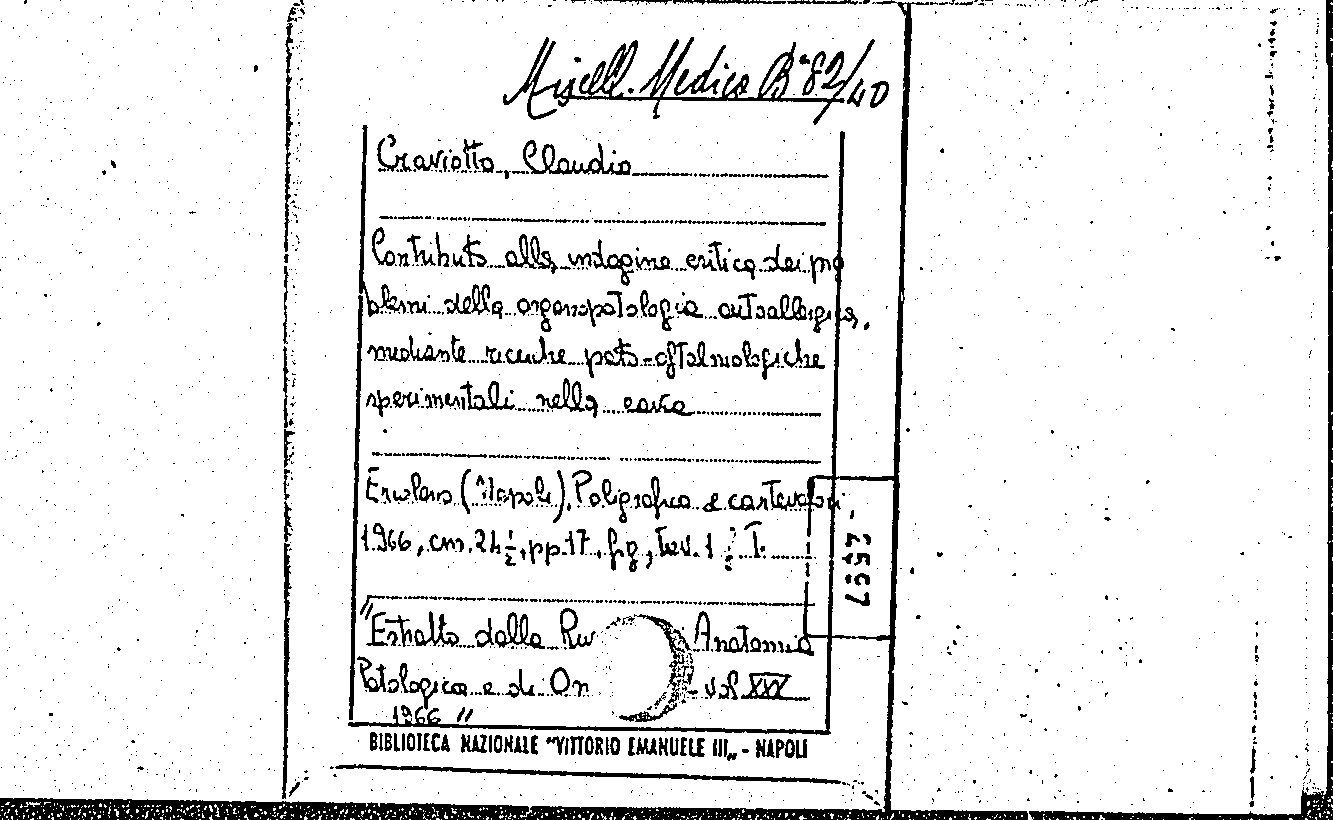 Miscell. Medico B° 82/40
Craviotto, Claudio
Contributo alla indagine critica dei pro
blemi della organopatologia autoallergica,
mediante ricerche pato-oftalmologiche
sperimentali nella cavia
Ercolano (Napoli), Poligrafica e cartevalori,
1966, cm. 24½, pp. 17, fig, tav. 1 T.
"Estratto dalla Riv Anatomia
Patologica e di On - vol XXX
1966"
BIBLIOTECA NAZIONALE "VITTORIO EMANUELE III„ - NAPOLI